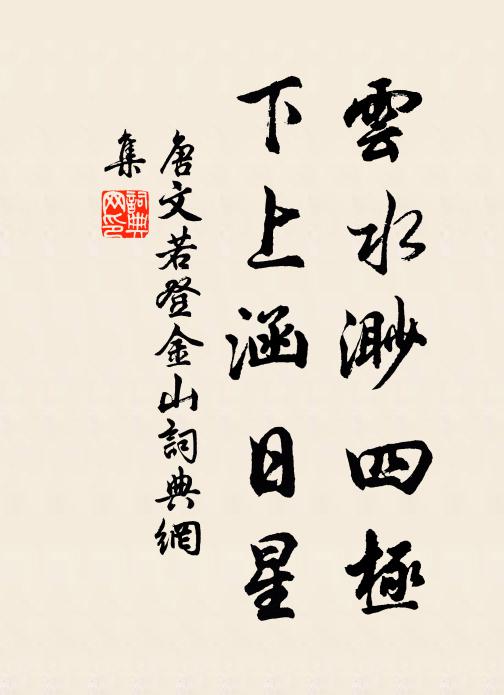 雲水渺四極
下上涵日星
唐文若登金山詞典網
集
詞典網印